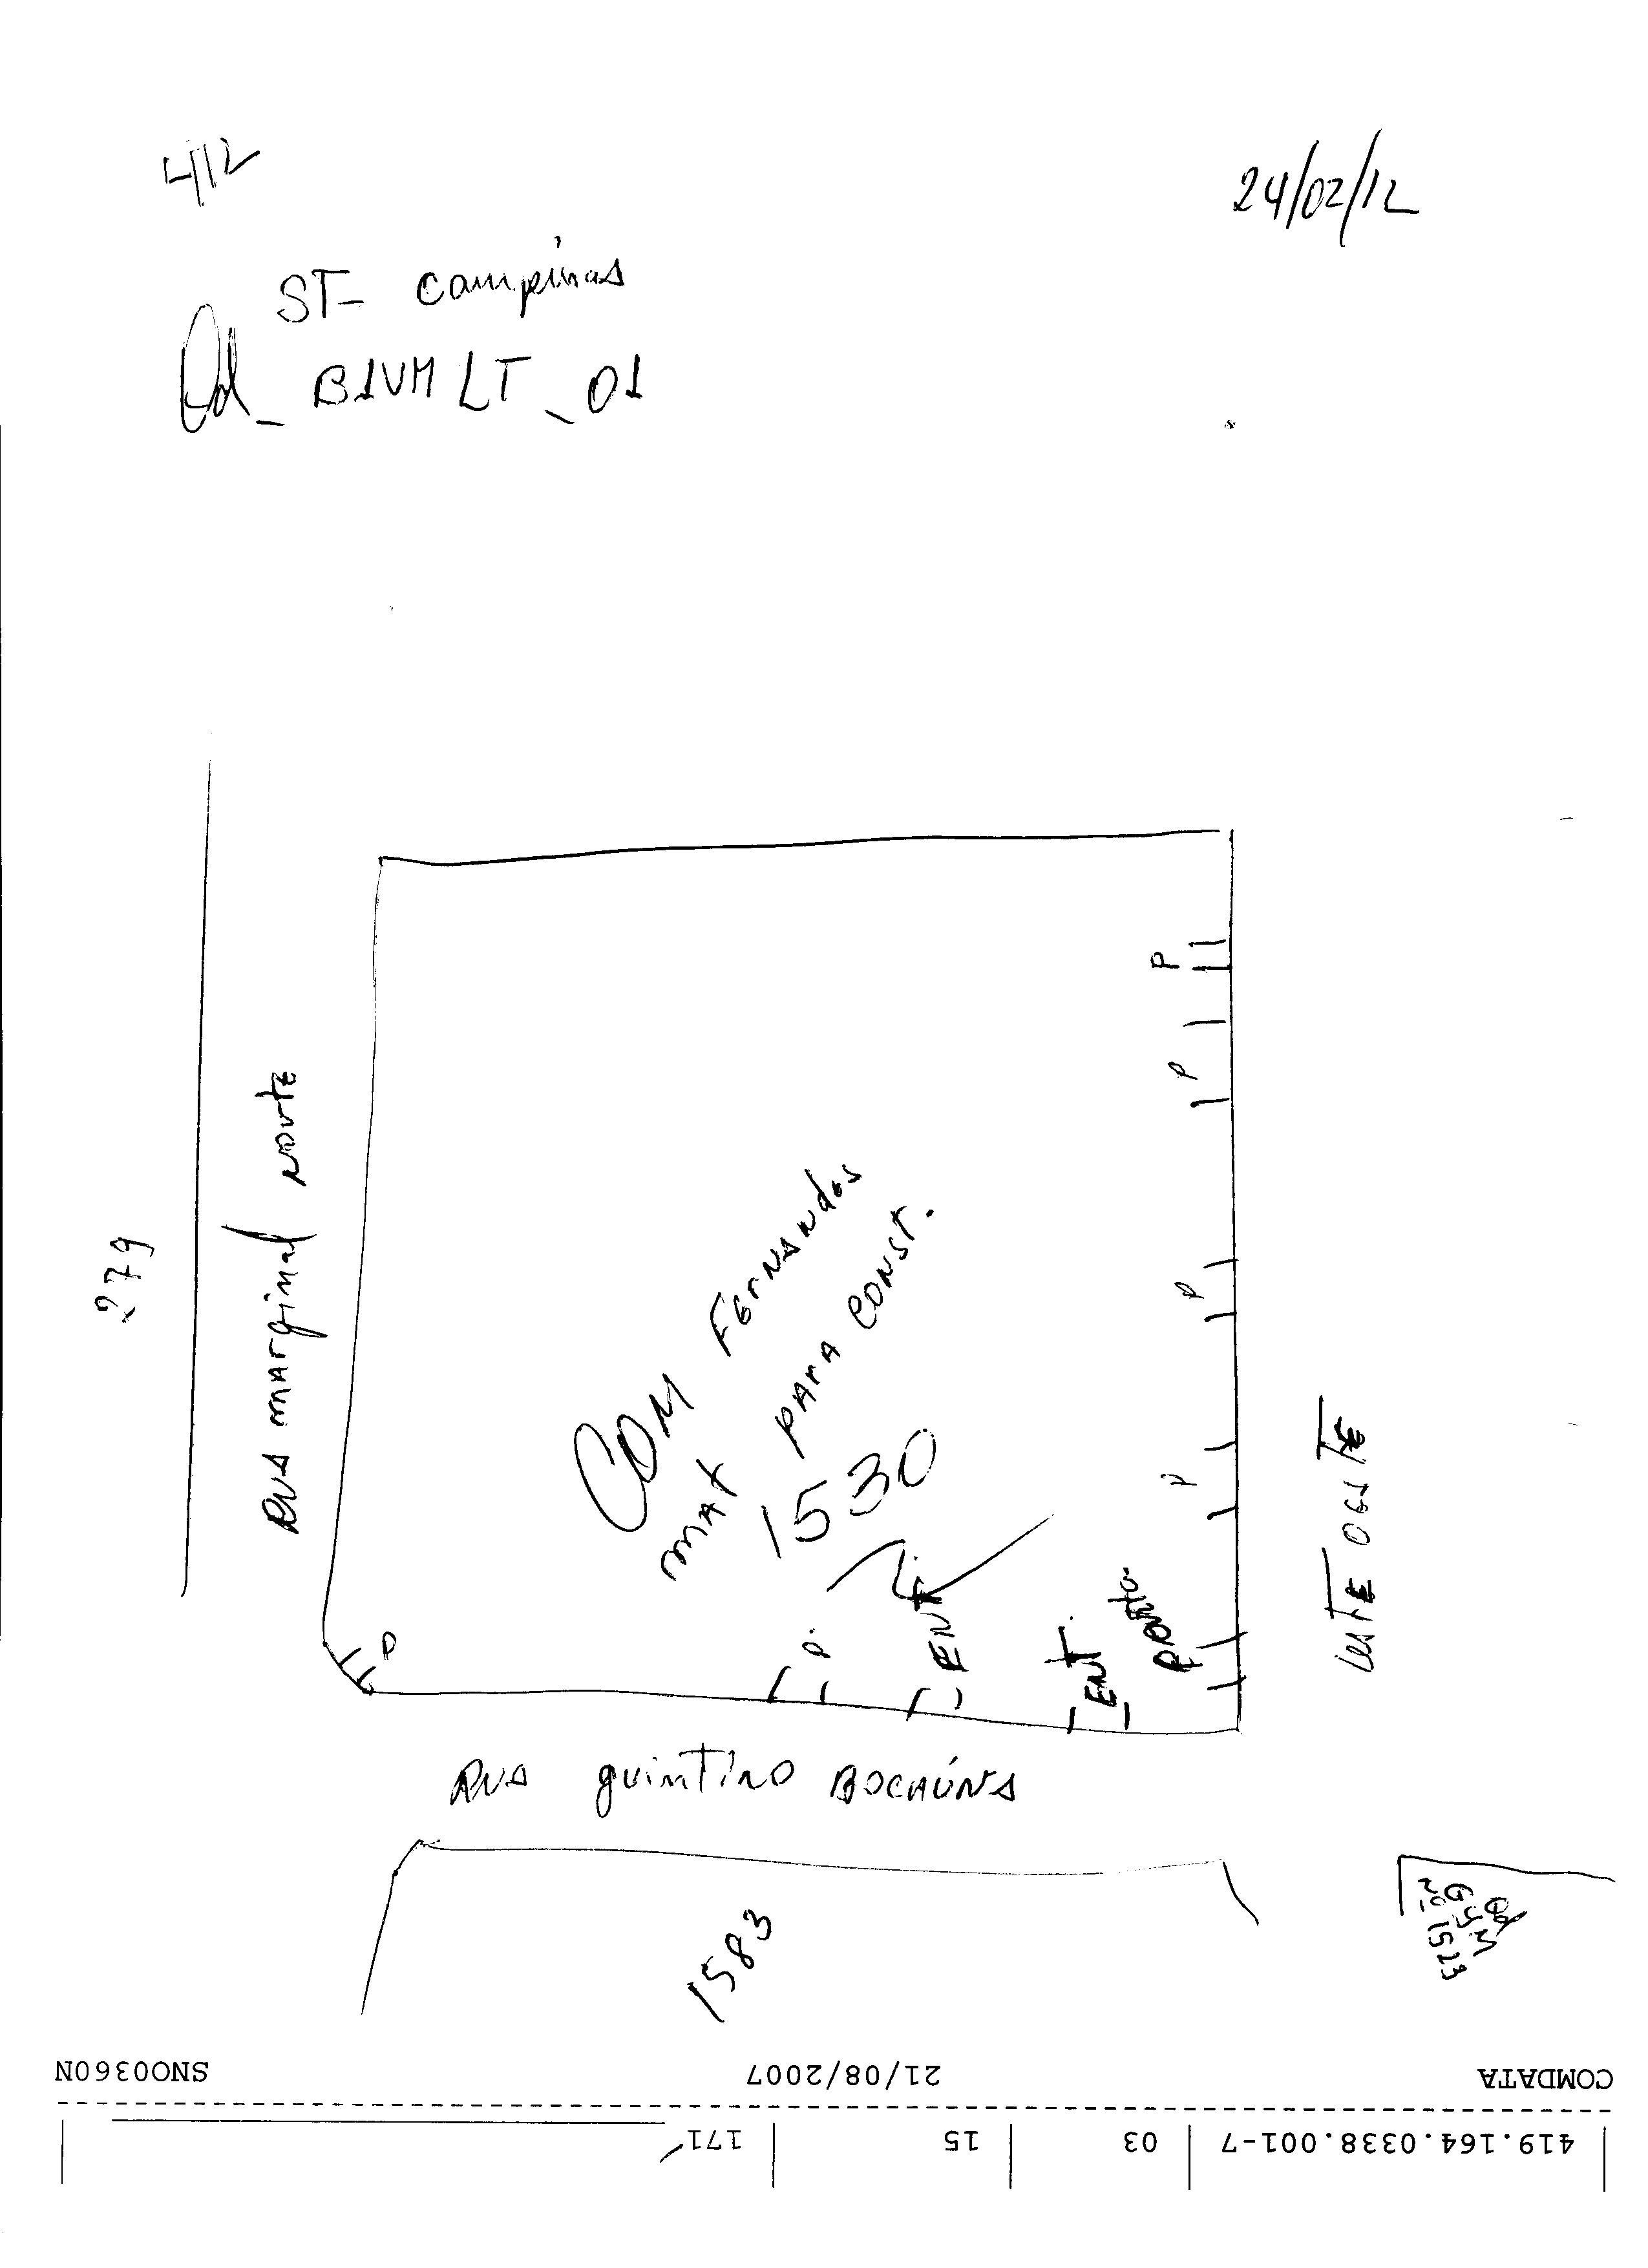 412
24/02/12
ST- campinas
Qd_ B1VM LT_01
P
P
279
RUA MArginal NOrtE
COM FErNANdES
MAT PArA CONST.
1530
P
P
LESTE OESTE
P
P.
ENT.
ENT.
POrtA
RUA quintino BOCAÚNA
1583
Qd
GYM
Nº 1523
SNO0360N
21/08/2007
COMDATA
171
15
03
419.164.0338.001-7